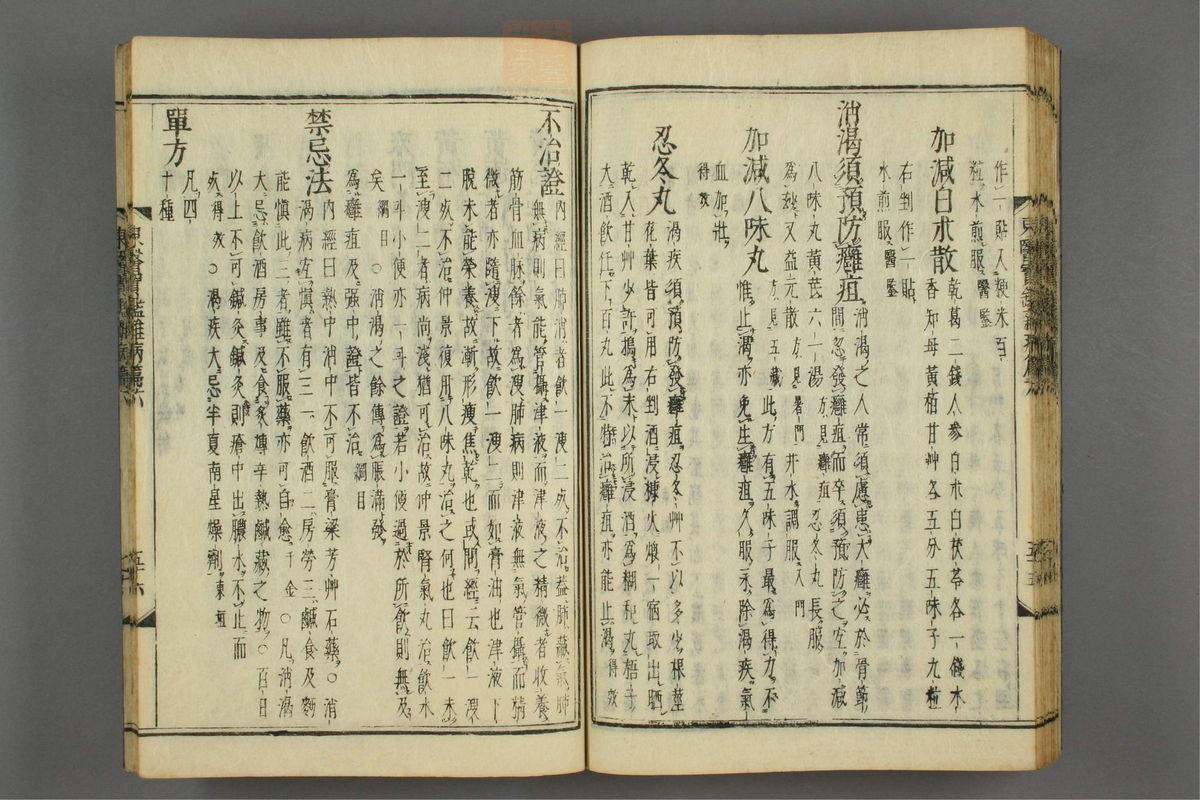 作一貼入粳米百
粒水煎服醫鑒
加減白朮散
乾葛二錢人參白朮白茯苓各一錢木
香知母黃栢甘艸各五分五味子九粒
右剉作一貼
水煎服醫鑒
消渴須預防癰疽
消渴之人常須慮患大癰必於骨節
間忽發癰疽而卒須預防之宜加減
八味丸黃芪六一湯方見癰疽忍冬丸長服
爲妙又益元散方見暑門井水調服入門
加減八味丸
方見五藏此方有五味子最爲得力不
惟止渴亦免生癰疽久服永除渴疾氣
血加壯
得效
忍冬丸
渴疾須預防發癰疽忍冬艸不以多少根莖
花葉皆可用右剉酒浸糠火煨一宿取出晒
乾入甘艸少許搗爲末以所浸酒爲糊和丸梧子
大酒飮任下百丸此不特治癰疽亦能止渴得效
東醫寶鑑雜病篇六
五十五
不治證
內經曰肺消者飮一溲二死不治盖肺藏氣肺
無病則氣能管攝津液而津液之精微者收養
筋骨血脉餘者爲溲肺病則津液無氣管攝而精
微者亦隨溲下故飮一溲二而如膏油也津液下
脫未能榮養故漸形瘦焦乾也或問經云飮一溲
二死不治仲景復用八味丸治之何也曰飮一未
至溲二者病尙淺猶可治故仲景腎氣丸治飮水
一斗小便亦一斗之證若小便過於所飮則無及
矣綱目○消渴之餘傳爲脹滿發
爲癰疽及强中證皆不治綱目
禁忌法
內經曰熱中消中不可服膏粱芳艸石藥○消
渴病宜愼者有三一飮酒二房勞三鹹食及麪
能愼此三者雖不服藥亦可自愈千金○凡消渴
大忌飮酒房事及食炙煿辛熱鹹藏之物○百日
以上不可鍼灸鍼灸則瘡中出膿水不止而
死得效○渴疾大忌半夏南星燥劑東垣
單方
凡四
十種
東醫寶鑑雜病篇六
五十六